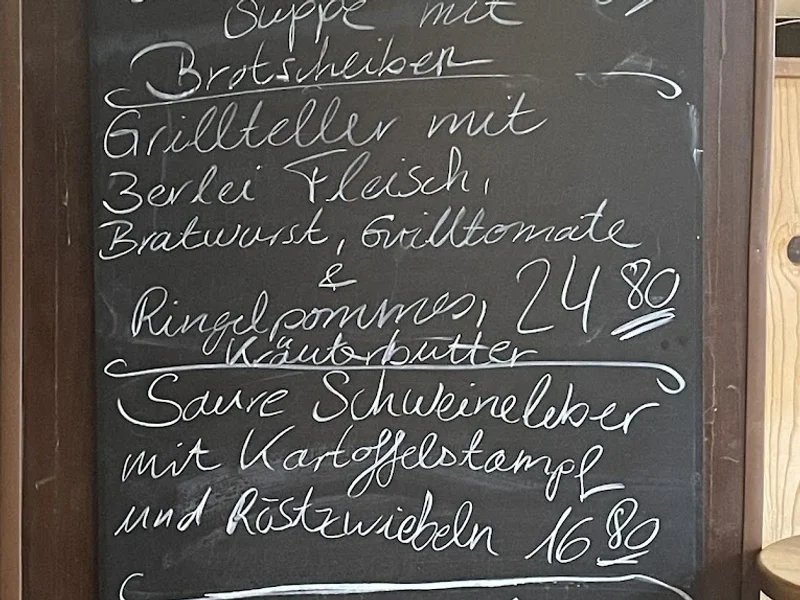 Suppe mit
Brotscheiben
Grillteller mit
3erlei Fleisch,
Bratwurst, Grilltomate
&
Ringelpommes, 24 80
Kräuterbutter
Saure Schweineleber
mit Kartoffelstampf
und Röstzwiebeln 16 80